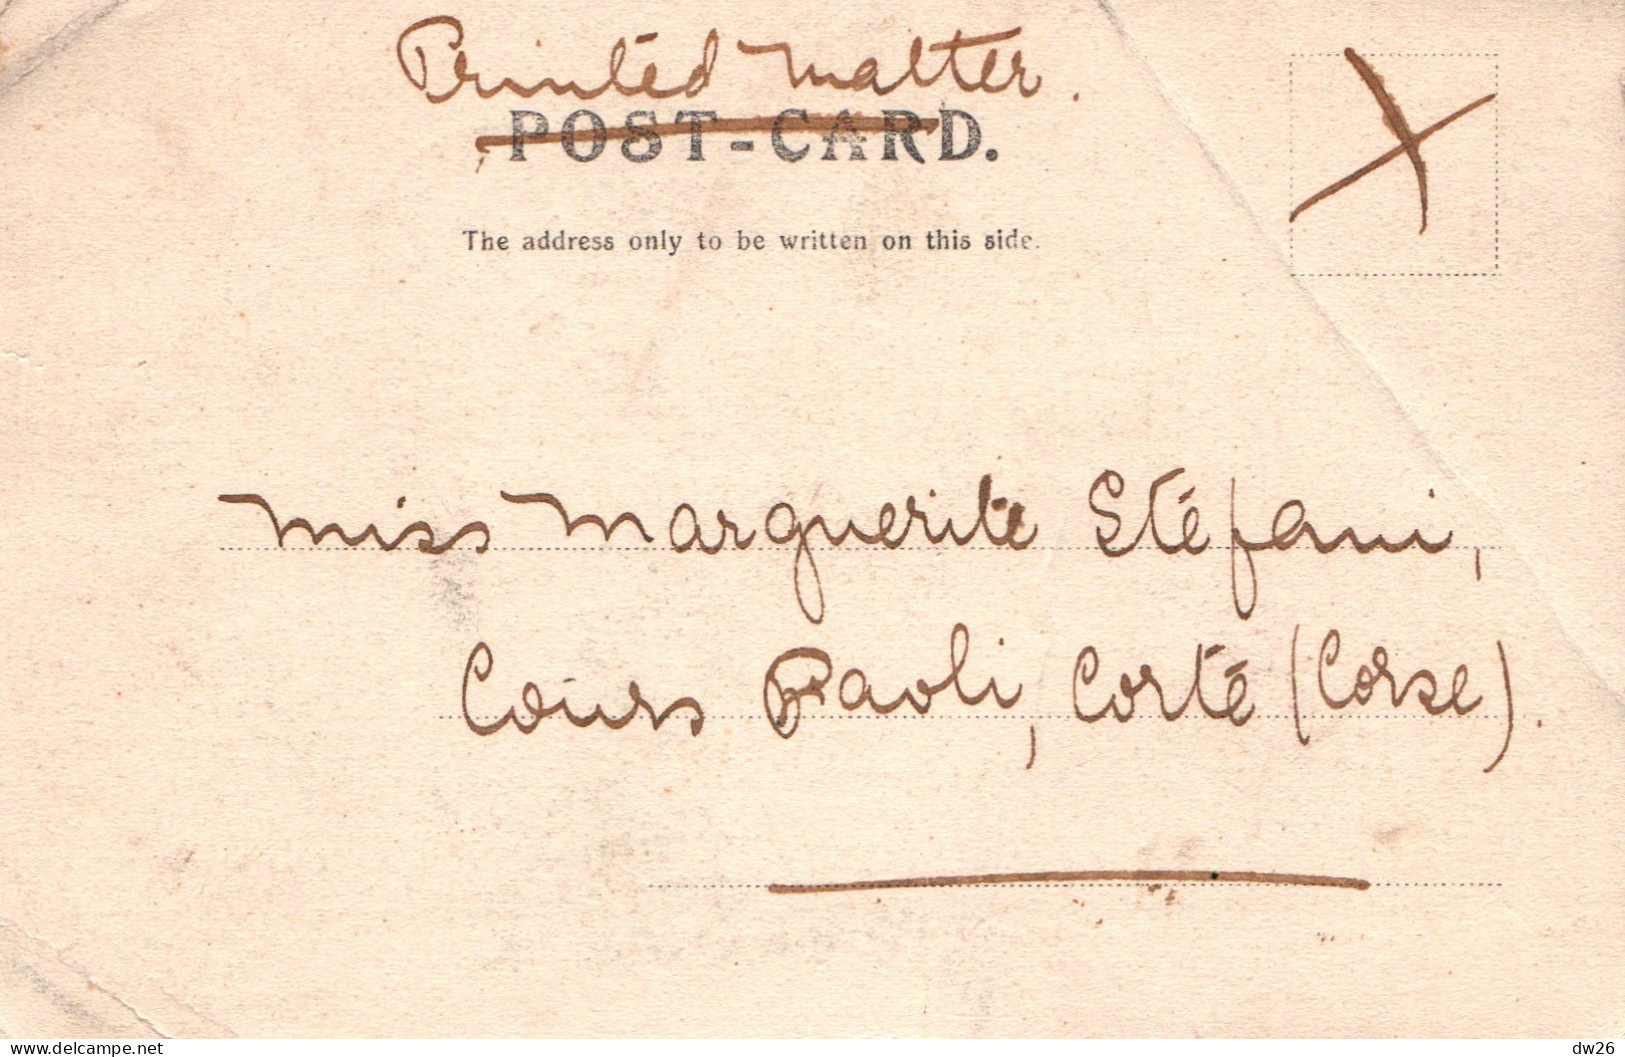 Printéd matter.
POST-CARD.
The address only to be written on this side.
Miss Marguerite Stéfani,
Cours Paoli, Corté (Corse).
www.delcampe.net
dw26